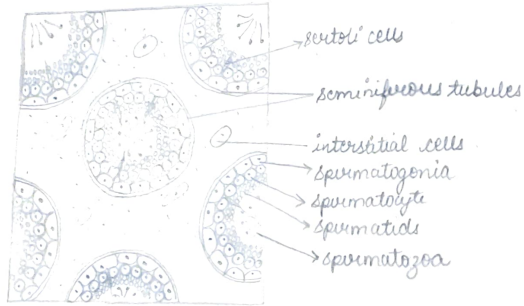 sertoli cells
seminiferous tubules
interstitial cells
spermatogonia
spermatocyte
spermatids
spermatozoa